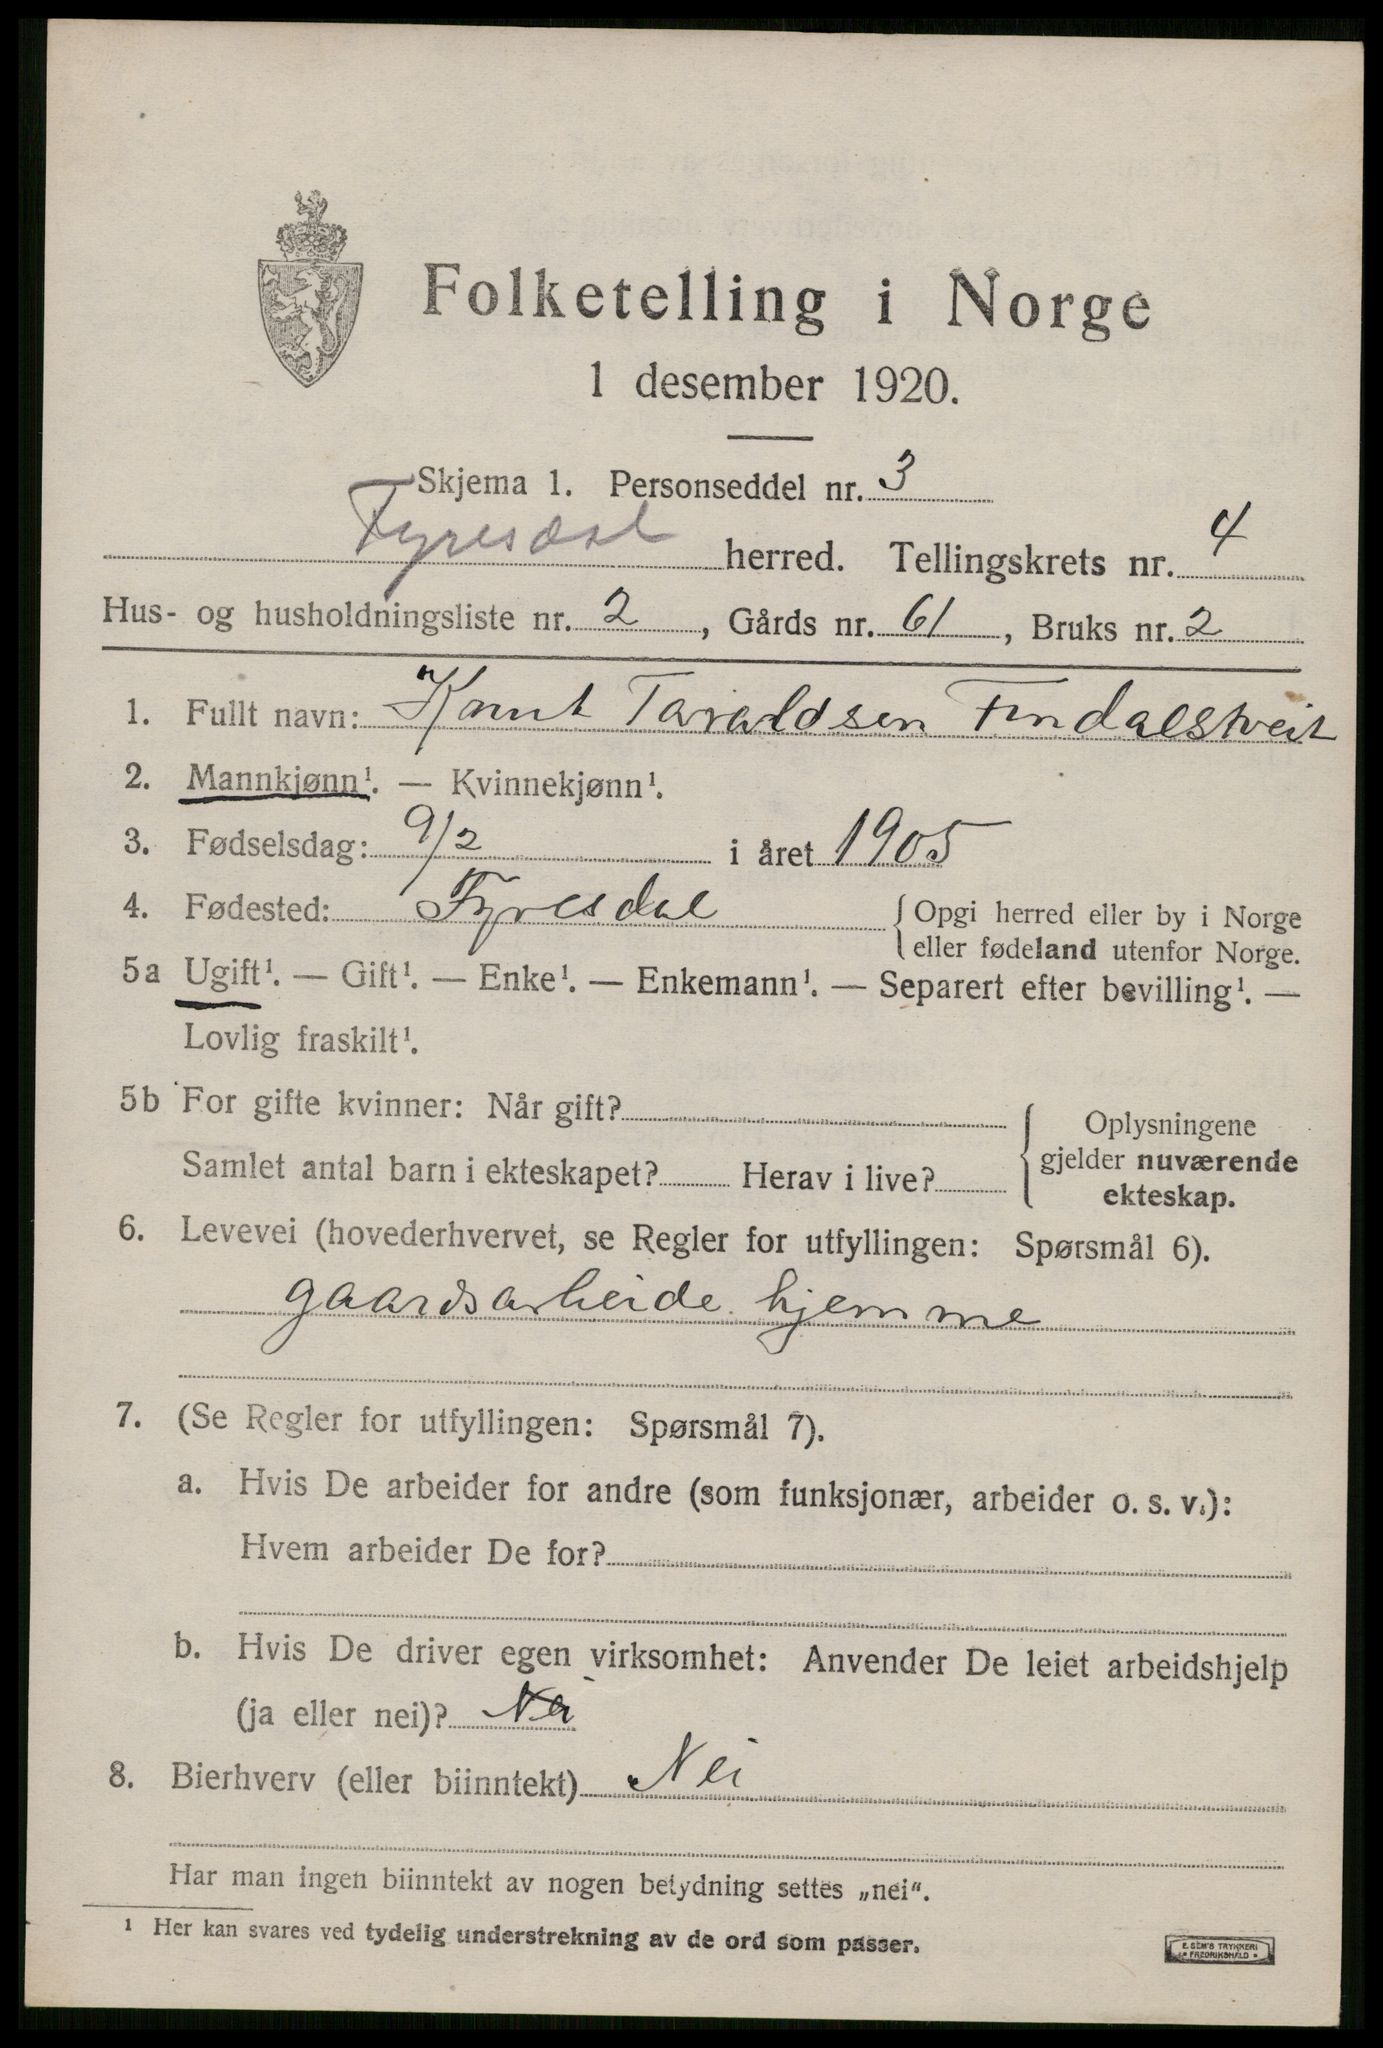 Folketelling i Norge
1 desember 1920.
Skjema 1. Personseddel nr. 3
Fyresdal herred. Tellingskrets nr. 4
Hus- og husholdningsliste nr. 2, Gårds nr. 61, Bruks nr. 2
1. Fullt navn: Knut Taraldsen Findalstveit
2. Mannkjønn¹. — Kvinnekjønn¹.
3. Fødselsdag: 9/2 i året 1905
4. Fødested: Fyresdal { Opgi herred eller by i Norge
eller fødeland utenfor Norge.
5a Ugift¹. — Gift¹. — Enke¹. — Enkemann¹. — Separert efter bevilling¹. —
Lovlig fraskilt¹.
5b For gifte kvinner: Når gift?
Samlet antal barn i ekteskapet? Herav i live?
{ Oplysningene
gjelder nuværende
ekteskap.
6. Levevei (hovederhvervet, se Regler for utfyllingen: Spørsmål 6).
gaardsarbeide hjemme
7. (Se Regler for utfyllingen: Spørsmål 7).
a. Hvis De arbeider for andre (som funksjonær, arbeider o. s. v.):
Hvem arbeider De for?
b. Hvis De driver egen virksomhet: Anvender De leiet arbeidshjelp
(ja eller nei)? Nei
8. Bierhverv (eller biinntekt) Nei
Har man ingen biinntekt av nogen betydning settes „nei“.
¹ Her kan svares ved tydelig understrekning av de ord som passer.
E. SEM'S TRYKKERI
FREDRIKSHALD